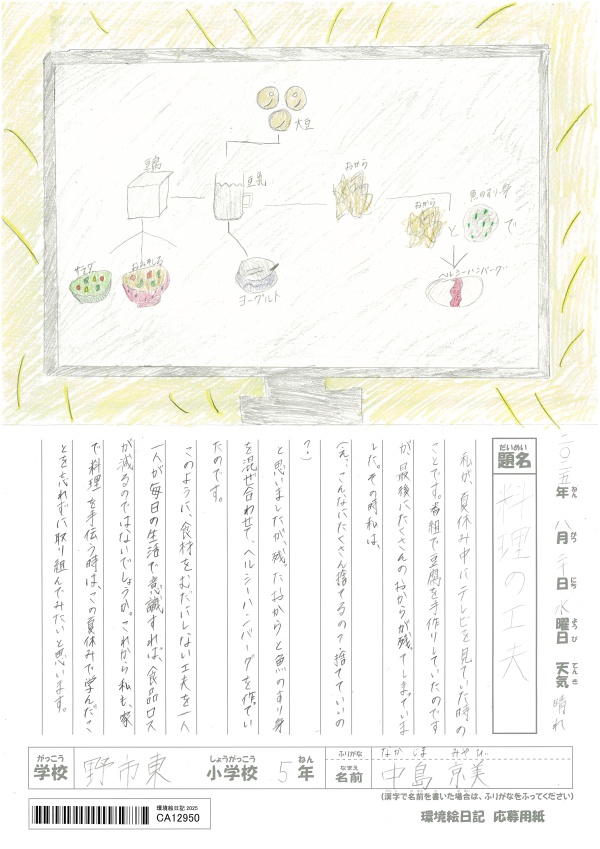 大豆
豆腐
豆乳
おから
おから
と
魚のすり身
で
サラダ
おみそしる
ヨーグルト
ヘルシーハンバーグ
二〇二五年 八月 二十日 水曜日 天気 晴れ
ねん がつ にち ようび てんき
だいめい
題名 料理の工夫
私が、夏休み中にテレビを見ていた時の
ことです。番組で豆腐を手作りしていたのです
が、最後にたくさんのおからが残ってしまっていま
した。その時私は、
(えっ、こんなにたくさん捨てるの?捨てていいの
?)
と思いましたが、残ったおからと魚のすり身
を混ぜ合わせて、ヘルシーハンバーグを作ってい
たのです。
このように、食材をむだにしない工夫を一人
一人が毎日の生活で意識すれば、食品ロス
が減るのではないでしょうか。これから私も、家
で料理を手伝う時は、この夏休みで学んだこ
とを忘れずに取り組んでみたいと思います。
がっこう しょうがっこう ねん
学校 野市東 小学校 5年
ふりがな なかじま みやび
なまえ
名前 中島 京美
(漢字で名前を書いた場合は、ふりがなをふってください)
環境絵日記 2025
CA12950
環境絵日記 応募用紙